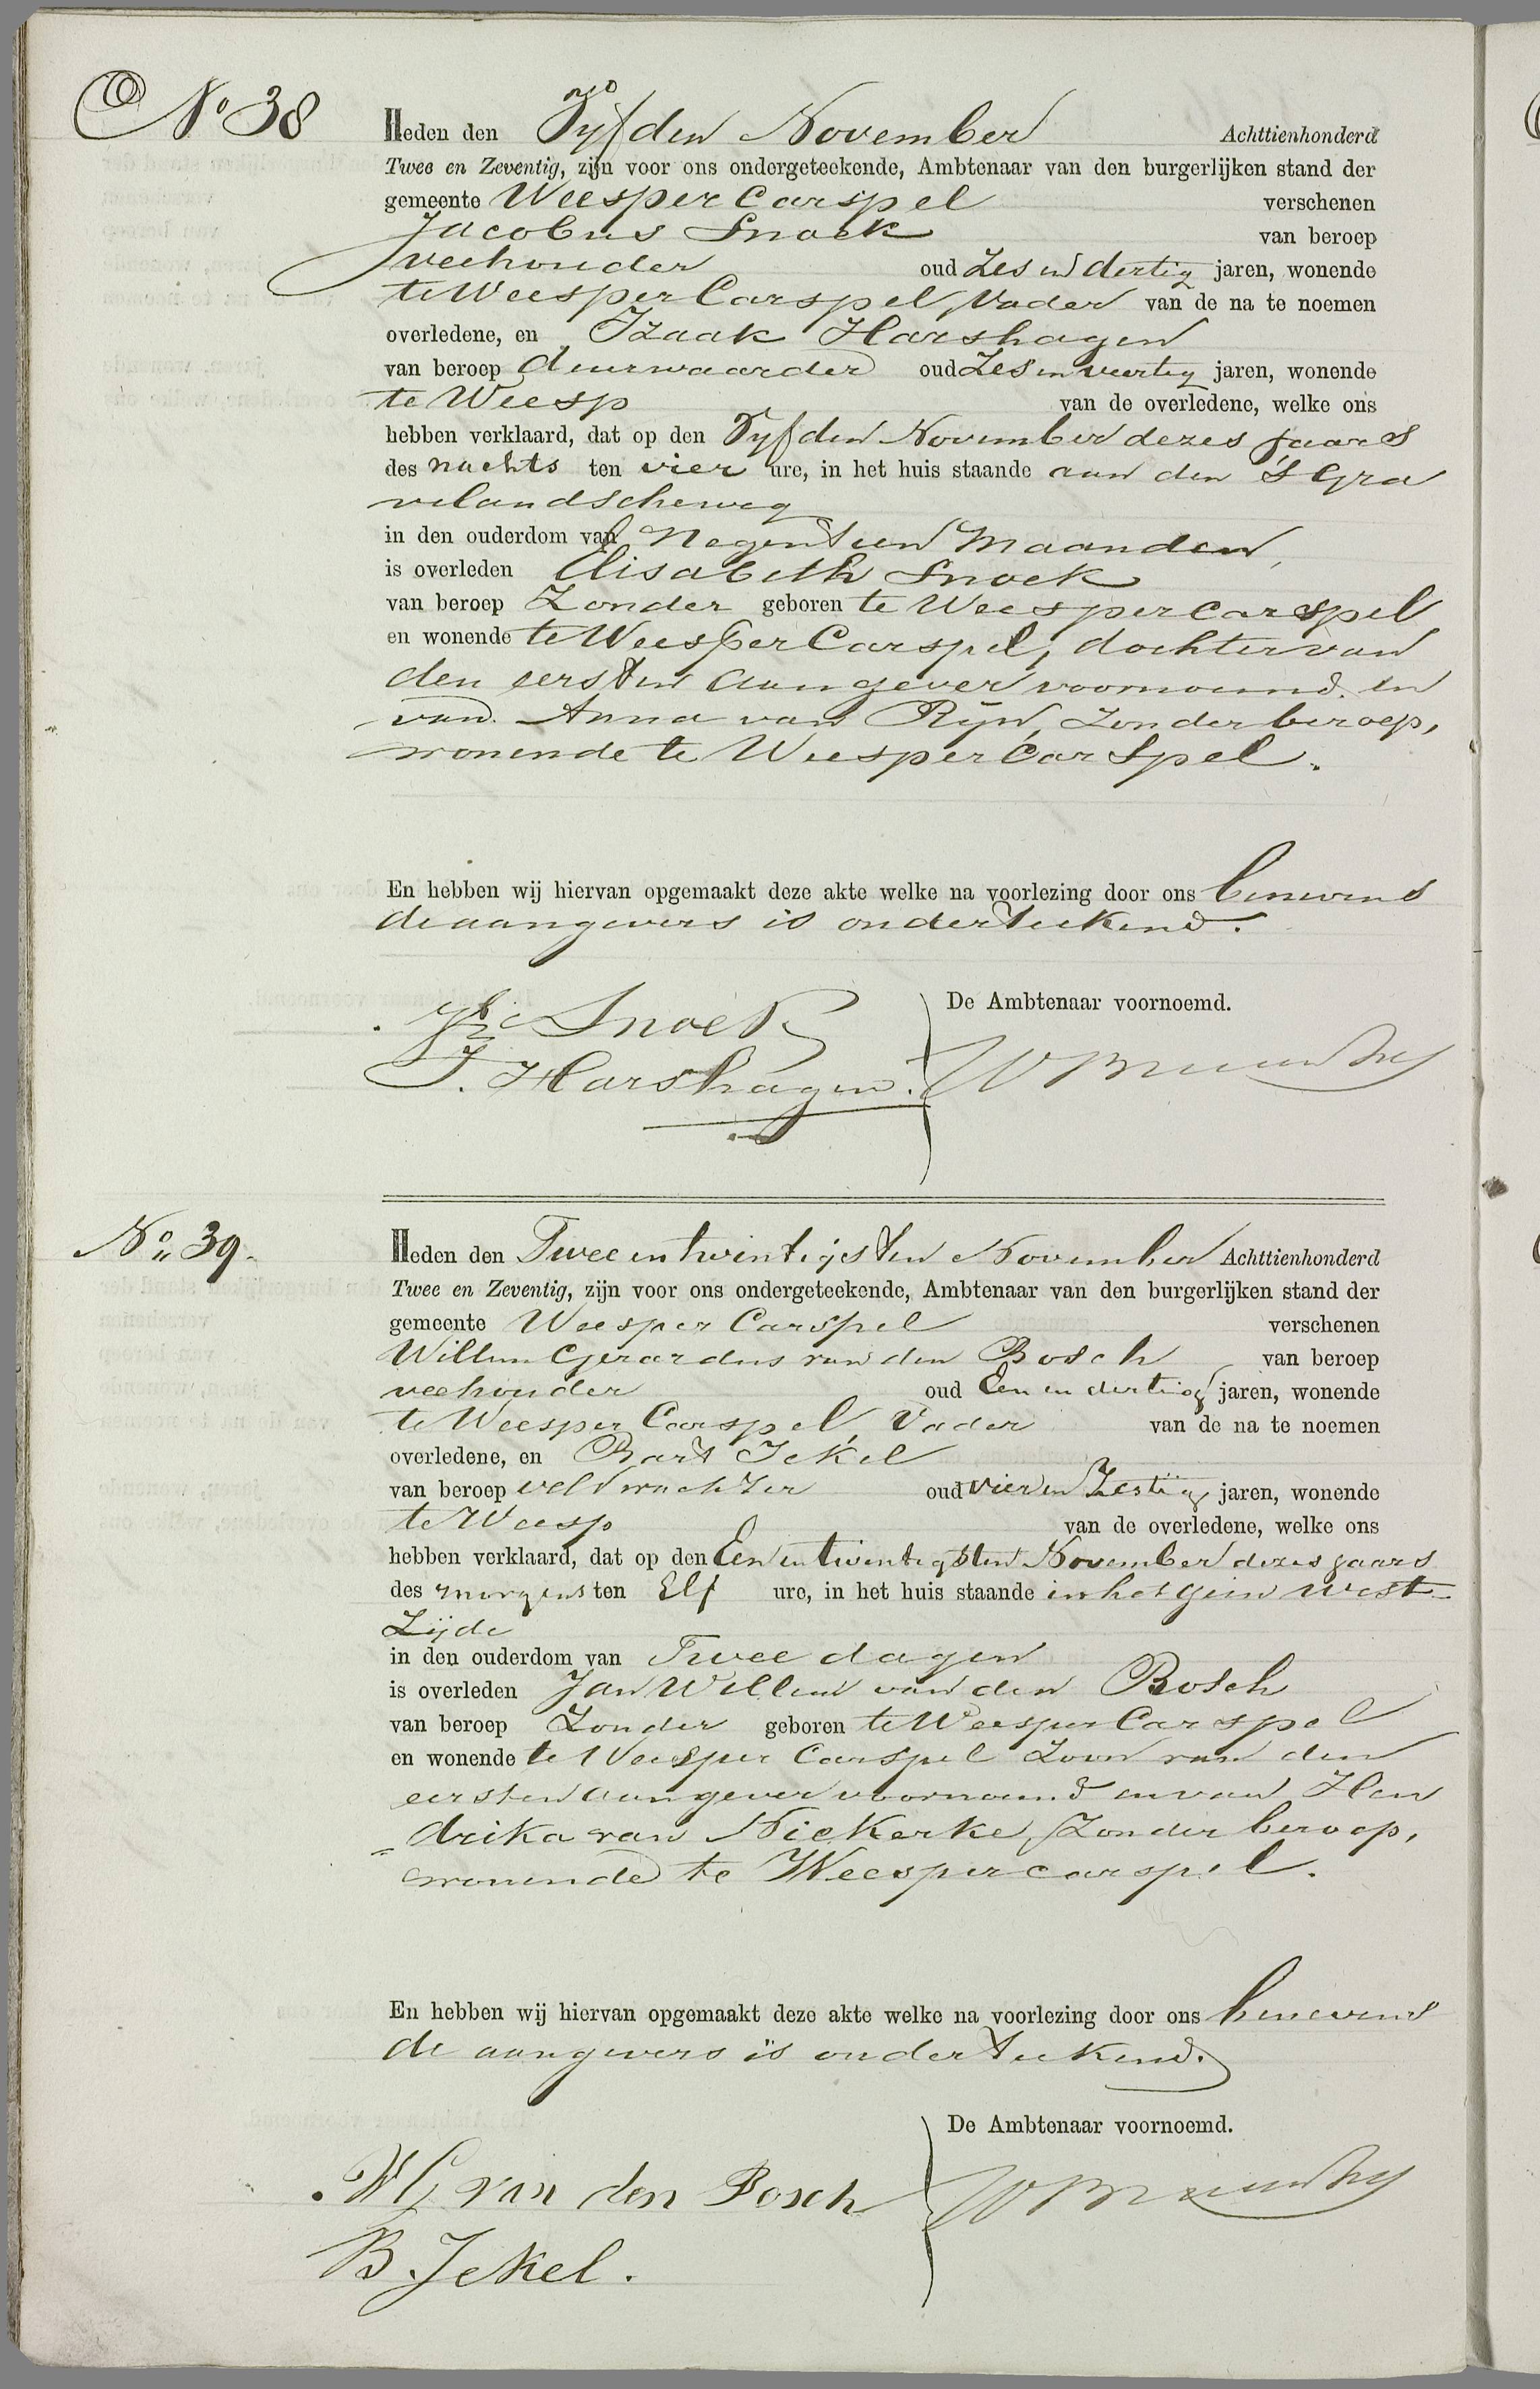 No 38
Heden den Vyfden November Achttienhonderd
Twee en Zeventig, zijn voor ons ondergeteekende, Ambtenaar van den burgerlijken stand der
gemeente Weesper Carspel verschenen
Jacobus Snoek van beroep
veehouder oud Zes en dertig jaren, wonende
te Weesper Carspel, Vader van de na te noemen
overledene, en Izaak Harshagen
van beroep deurwaarder oud Zes en veertig jaren, wonende
te Weesp van de overledene, welke ons
hebben verklaard, dat op den Vyfden November dezes jaars
des nachts ten vier ure, in het huis staande aan den 's Gra
velandscheweg
in den ouderdom van Negentien Maanden,
is overleden Elisabeth Snoek
van beroep Zonder geboren te Weespercarspel
en wonende te Weesper Carspel, dochter van
den eersten aangever voornoemd en
van Anna van Ryn, Zonder beroep,
wonende te Weespercarspel.
En hebben wij hiervan opgemaakt deze akte welke na voorlezing door ons benevens
de aangevers is onderteekend.
De Ambtenaar voornoemd.
Snoek
J. Harshagen.
No 39.
Heden den Twee en twintigsten November Achttienhonderd
Twee en Zeventig, zijn voor ons ondergeteekende, Ambtenaar van den burgerlijken stand der
gemeente Weesper Carspel verschenen
Willem Gerardus van den Bosch van beroep
veehouder oud Een en dertig jaren, wonende
te Weesper Carspel, Vader van de na te noemen
overledene, en Bart Jekel
van beroep veldwachter oud vier en Zestig jaren, wonende
te Weesp van de overledene, welke ons
hebben verklaard, dat op den Een en twintigsten November dezes jaars
des morgens ten Elf ure, in het huis staande in het Gein West
Zijde
in den ouderdom van Twee dagen
is overleden Jan Willem van den Bosch
van beroep Zonder geboren te Weesper Carspel
en wonende te Weesper Carspel Zoon van den
eersten aangever voornoemd en van Hen
drika van Niekerke, Zonder beroep,
wonende te Weespercarspel.
En hebben wij hiervan opgemaakt deze akte welke na voorlezing door ons benevens
de aangevers is onderteekend.
De Ambtenaar voornoemd.
WG van den Bosch
B. Jekel.